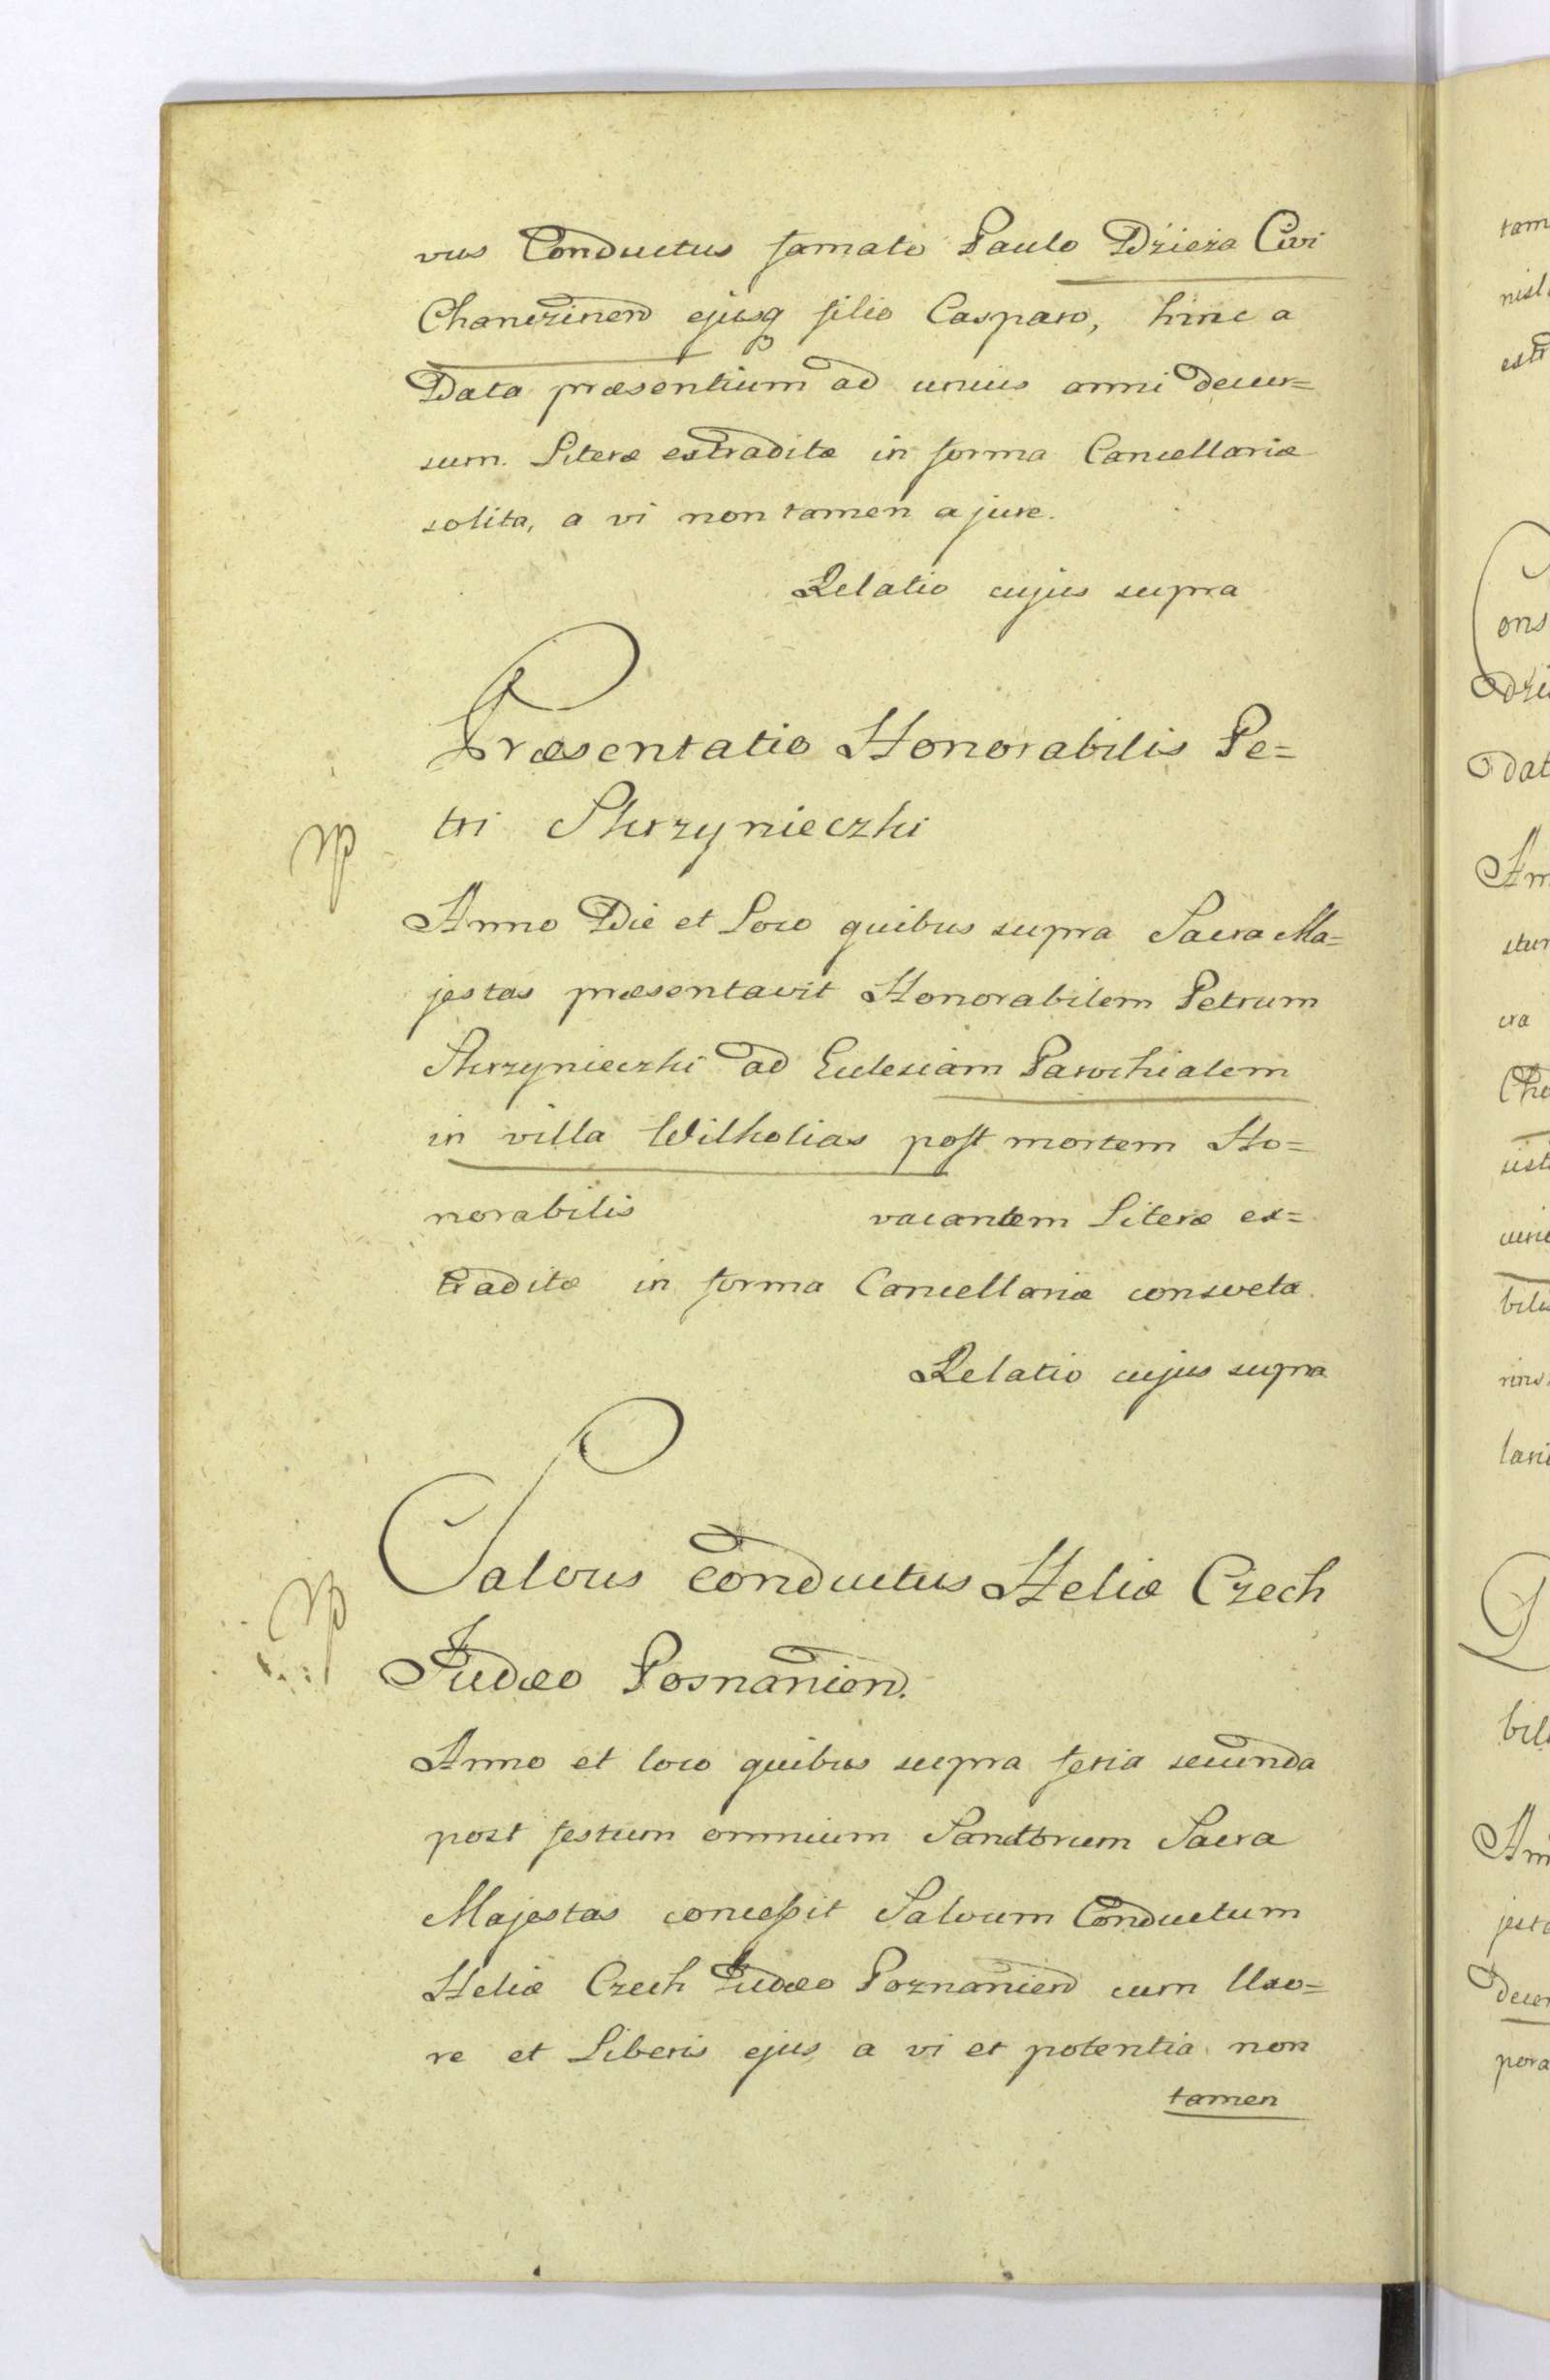 vus Conductus famato Paulo Dzieza Civi
Chancinen ejusq filio Casparo, hinc a
Data præsentium ad unius anni decur=
sum. Literæ extraditæ in forma Cancellariæ
solita, a vi non tamen a jure.
Relatio cujus supra
Præsentatio Honorabilis Pe=
tri Skrzynieczki
Anno Die et Loco quibus supra Sacra Ma=
jestas præsentavit Honorabilem Petrum
Skrzynieczki ad Ecclesiam Parochialem
in villa Wilkolias post mortem Ho=
norabilis vacantem Literæ ex=
traditæ in forma Cancellariæ consveta.
Relatio cujus supra
Salvus Conductus Heliæ Czech
Judæo Posnanien.
Anno et loco quibus supra feria secunda
post festum omnium Sanctorum Sacra
Majestas concessit Salvum Conductum
Heliæ Czech Judæo Poznanien cum Uxo=
re et Liberis ejus a vi et potentia non
tamen